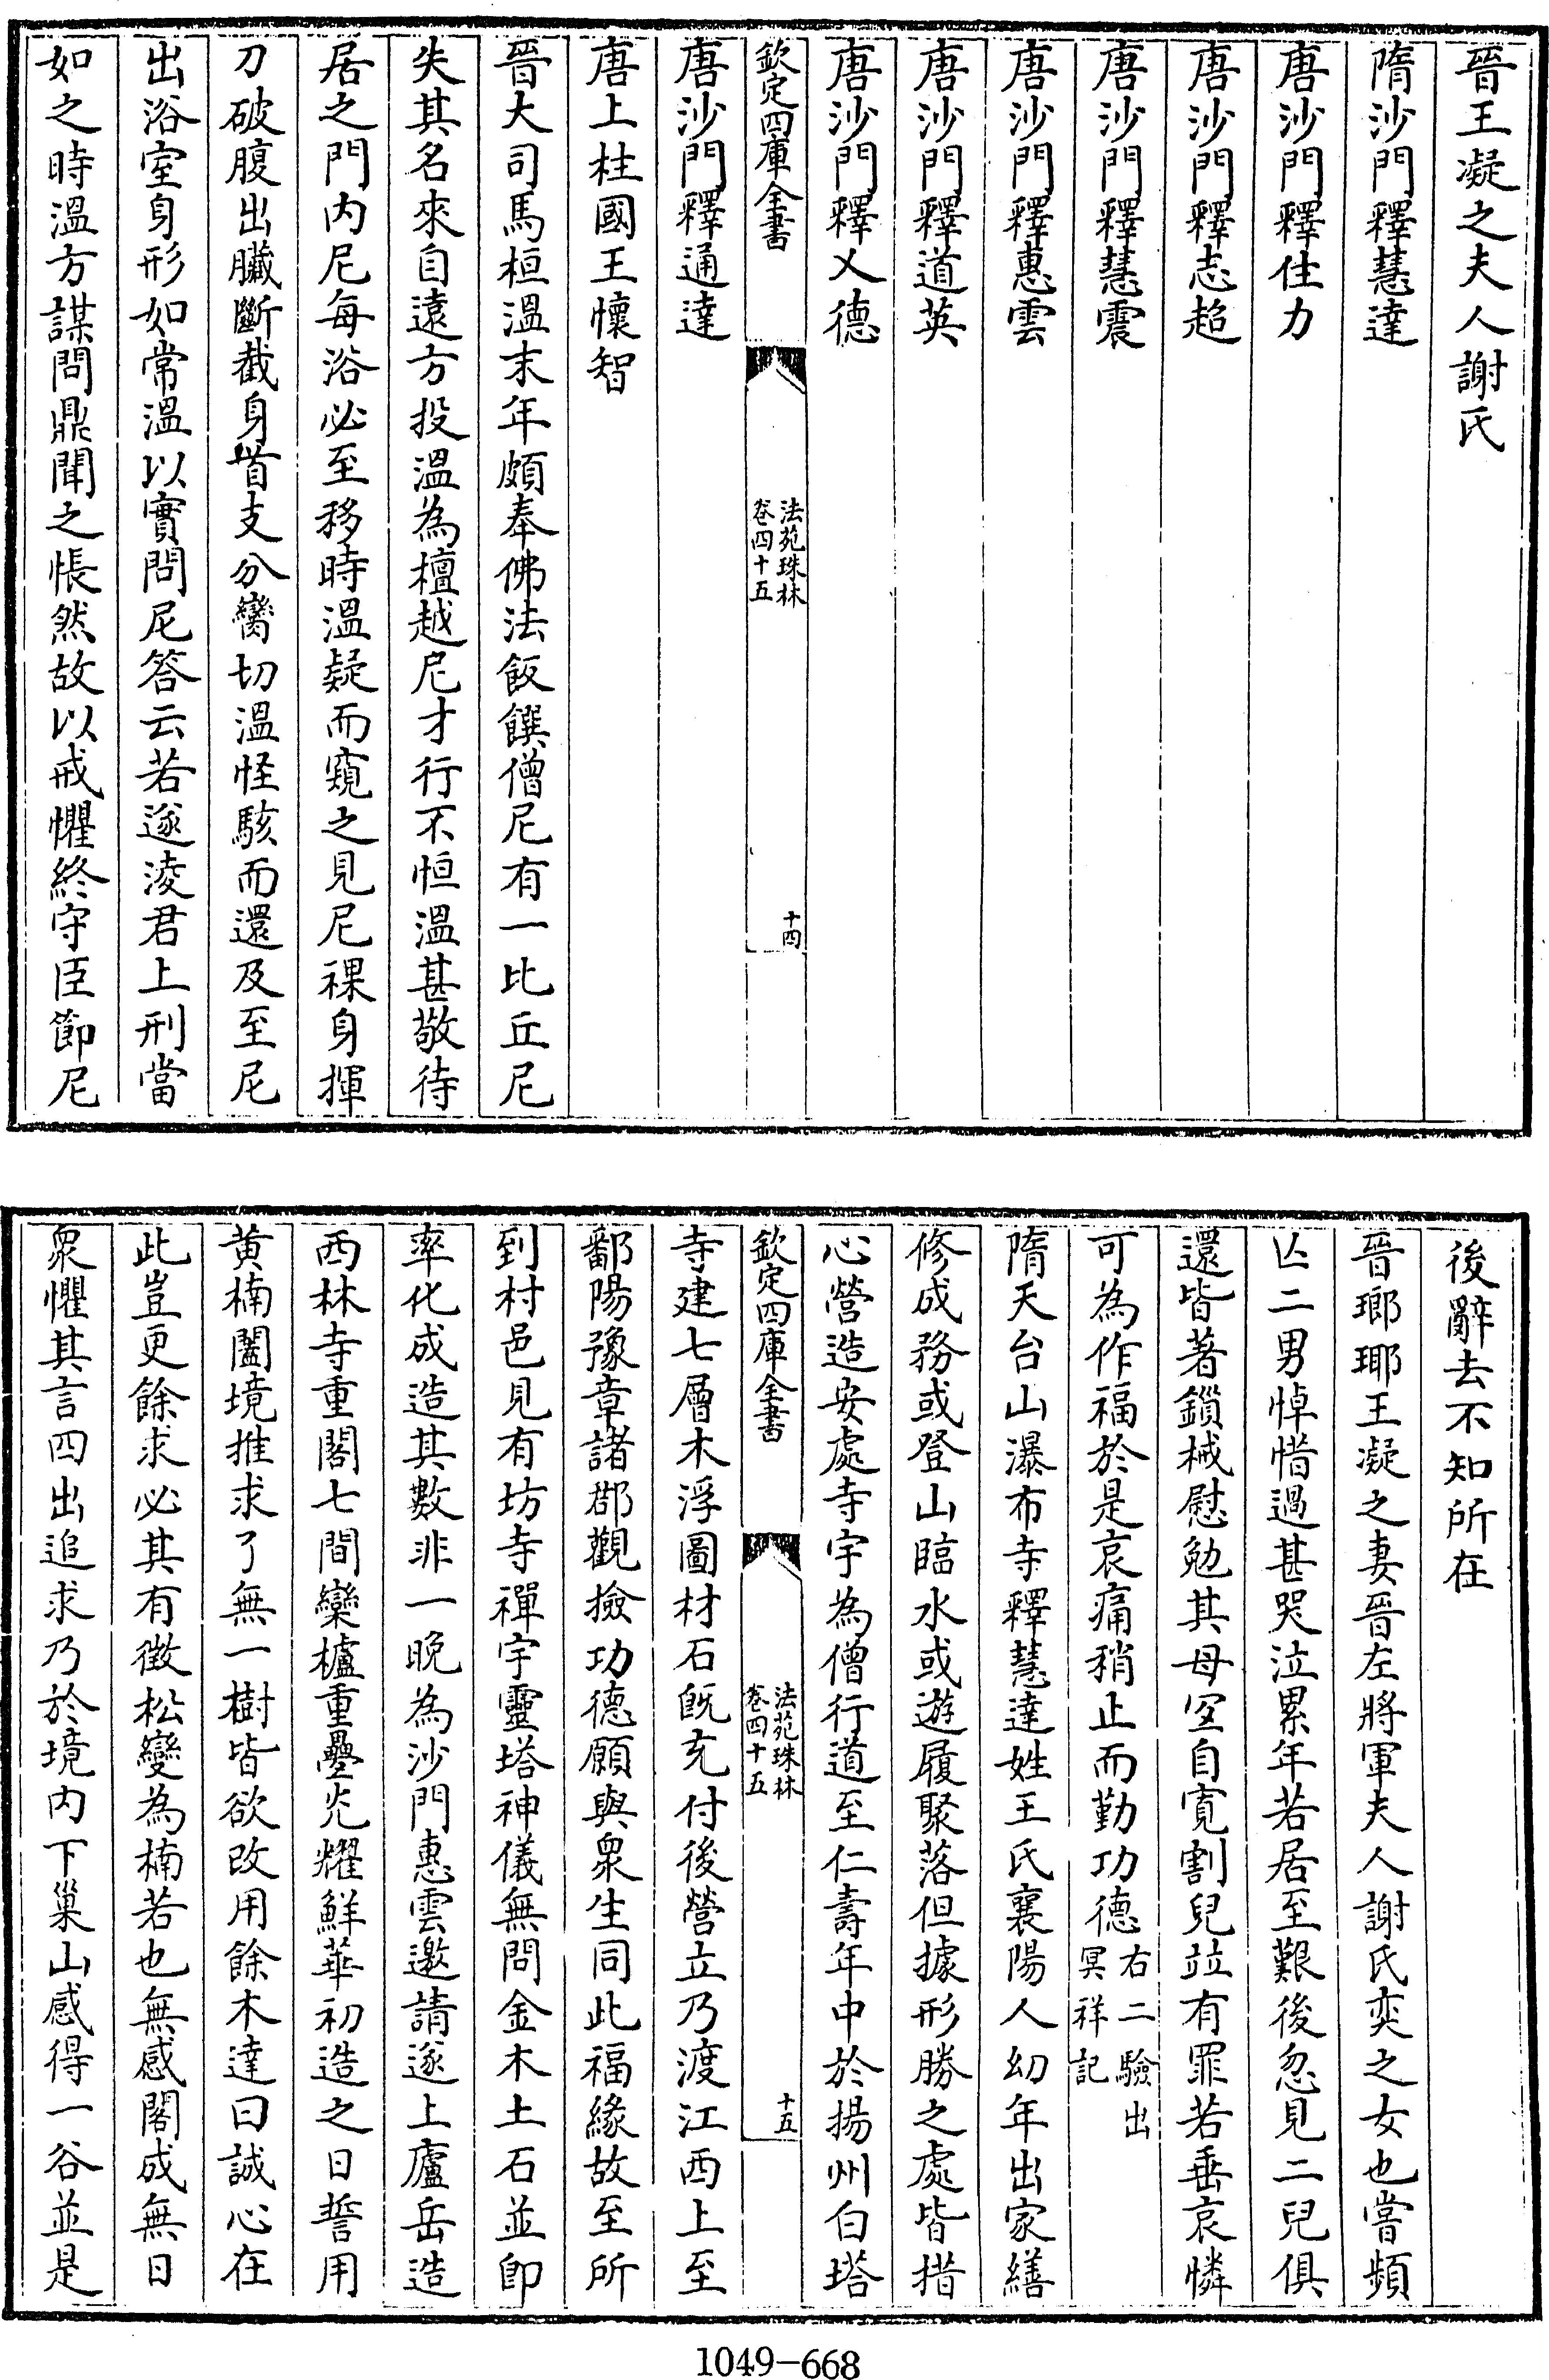 晉王凝之夫人謝氏
隋沙門釋慧達
唐沙門釋住力
唐沙門釋志超
唐沙門釋慧震
唐沙門釋惠雲
唐沙門釋道英
唐沙門釋乂德
欽定四庫全書
法苑珠林
卷四十五
十四
唐沙門釋通達
唐上柱國王懷智
晉大司馬桓溫末年頗奉佛法飯饌僧尼有一比丘尼
失其名來自遠方投溫為檀越尼才行不恒溫甚敬待
居之門内尼每浴必至移時溫疑而窺之見尼裸身揮
刀破腹出臟斷截身首支分臠切溫怪駭而還及至尼
出浴室身形如常溫以實問尼答云若遂淩君上刑當
如之時溫方謀問鼎聞之悵然故以戒懼終守臣節尼
後辭去不知所在
晉瑯琊王凝之妻晉左將軍夫人謝氏奕之女也嘗頻
亡二男悼惜過甚哭泣累年若居至艱後忽見二兒俱
還皆著鎖械慰勉其母宜自寬割兒竝有罪若垂哀憐
可為作福於是哀痛稍止而勤功德右二驗出冥祥記
隋天台山瀑布寺釋慧達姓王氏襄陽人幼年出家繕
修成務或登山臨水或遊履聚落但據形勝之處皆措
心營造安處寺宇為僧行道至仁壽年中於揚州白塔
欽定四庫全書
法苑珠林
卷四十五
十五
寺建七層木浮圖材石旣充付後營立乃渡江西上至
鄱陽豫章諸郡觀撿功德願與衆生同此福緣故至所
到村邑見有坊寺禪宇靈塔神儀無問金木土石並即
率化成造其數非一晚為沙門惠雲邀請遂上廬岳造
西林寺重閣七間欒櫨重疊光耀鮮華初造之日誓用
黄楠闔境推求了無一樹皆欲改用餘木達曰誠心在
此豈更餘求必其有徵松變為楠若也無感閣成無日
衆懼其言四出追求乃於境内下巢山感得一谷並是
1049-668